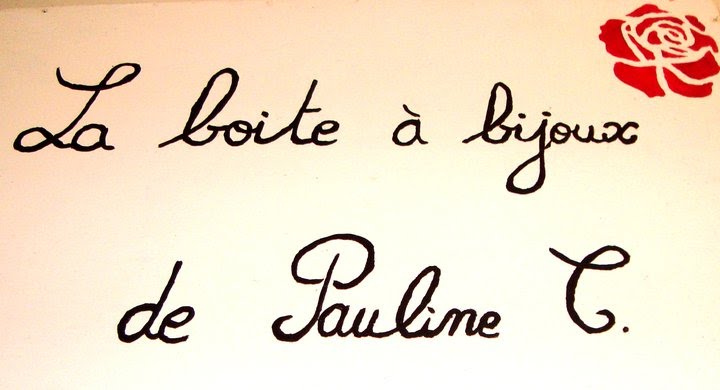 La boite à bijoux
de Pauline C.